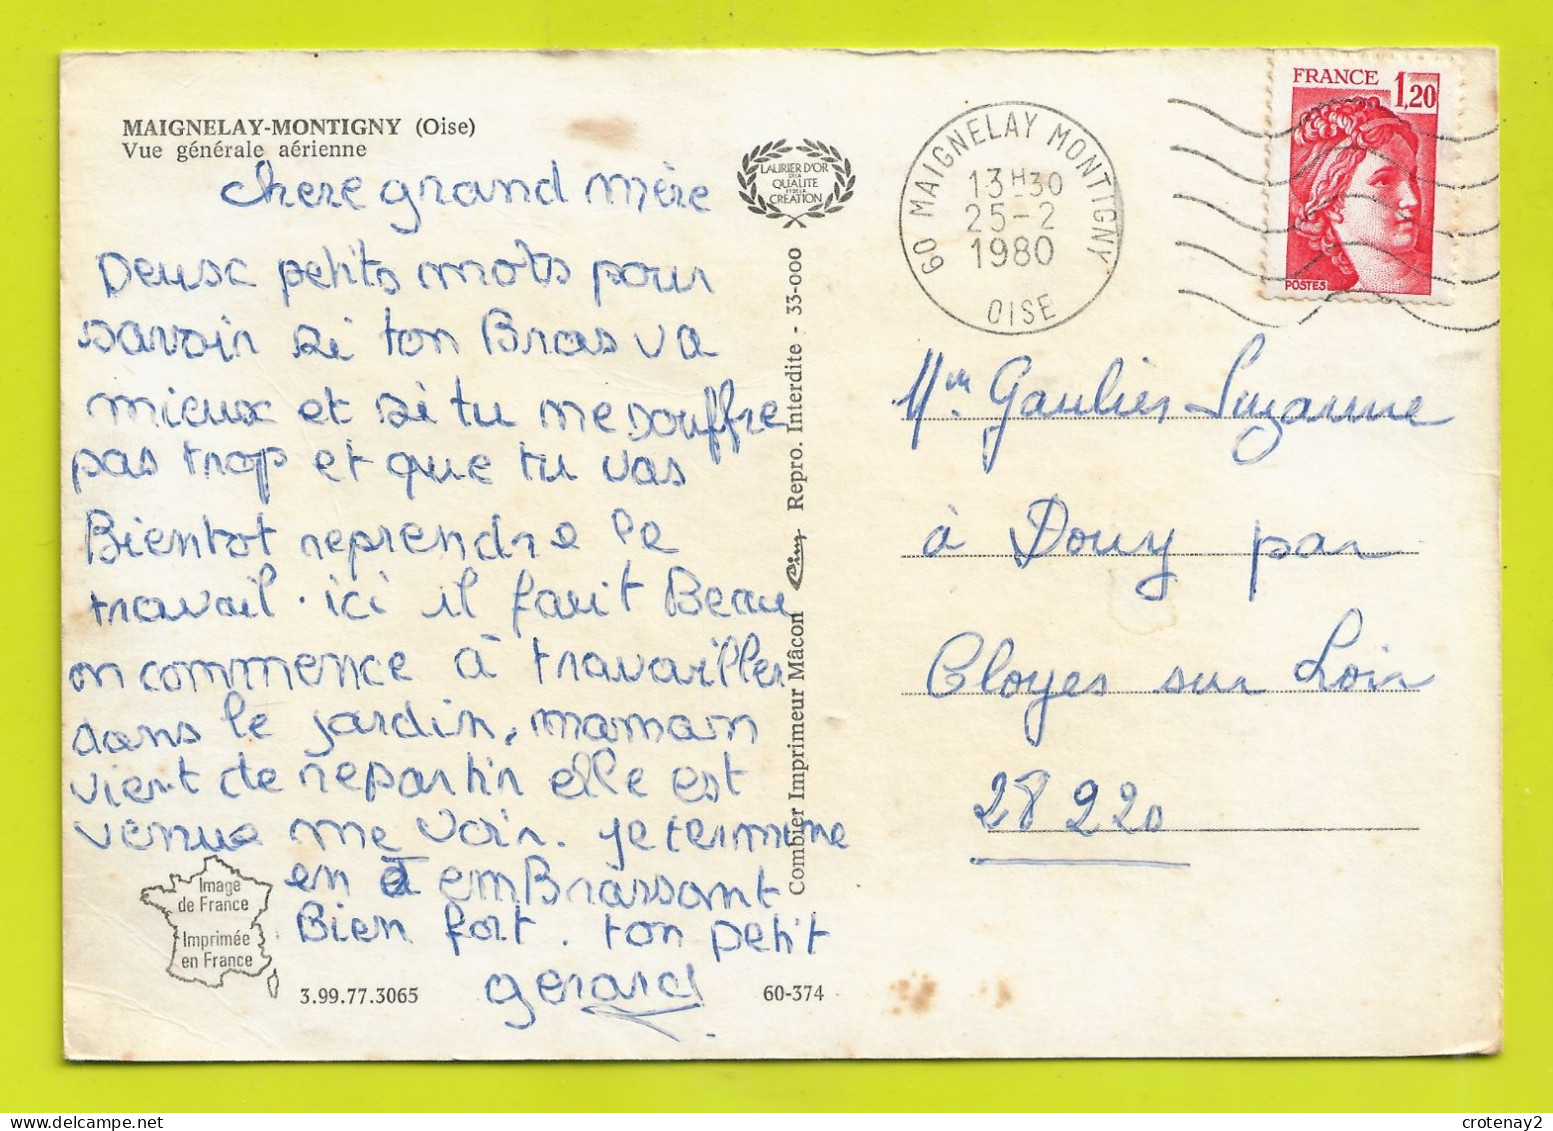 MAIGNELAY-MONTIGNY (Oise)
Vue générale aérienne
chere grand mère
Deux petits mots pour
savoir si ton Bras va
mieux et si tu ne souffre
pas trop et que tu vas
Bientot reprendre le
travail. ici il fait Beau
on commence à travailler
dans le jardin, maman
vient de repartir elle est
venue me voir. je termine
en t'emBrassant
Bien fort. ton petit
gerard
Image
de France
Imprimée
en France
3.99.77.3065
60-374
LAURIER D'OR
DE LA
QUALITE
ET DE LA
CREATION
Combier Imprimeur Mâcon Cim Repro. Interdite - 33-000
60 MAIGNELAY MONTIGNY
13H30
25-2
1980
OISE
FRANCE 1,20
POSTES
Mme Gaulier Suzanne
à Douy par
Cloyes sur Loir
28220
crotenay2